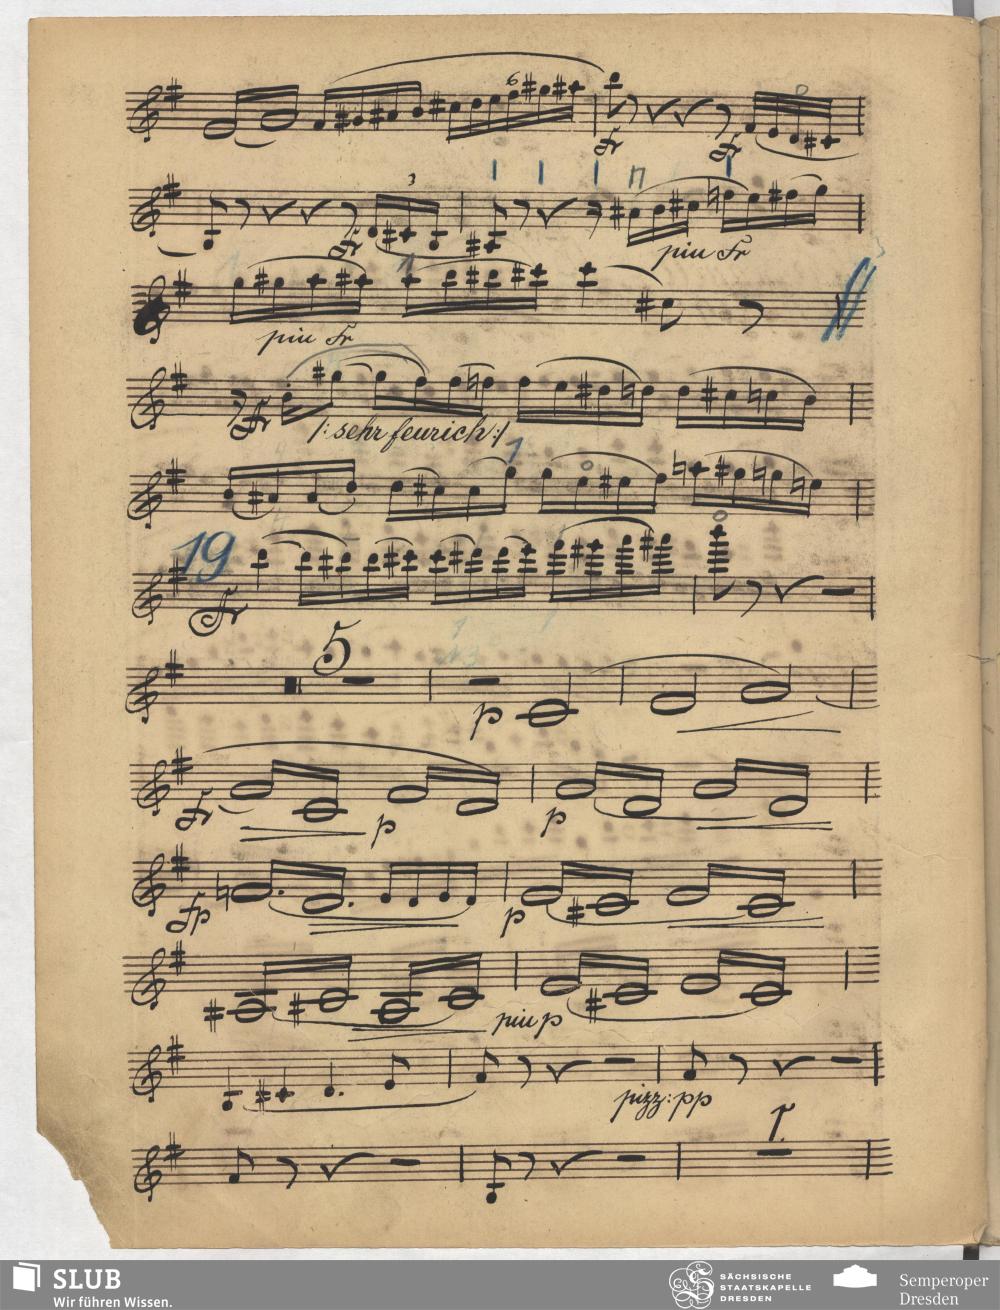 6
fr
fr
1 1 1 1
3
fr
piu fr
piu fr
fr
/: sehr feurich :/
1
19
fr
5
p
fr
p
p
fp
p
piu p
pizz: pp
1.
SLUB
Wir führen Wissen.
SÄCHSISCHE
STAATSKAPELLE
DRESDEN
Semperoper
Dresden